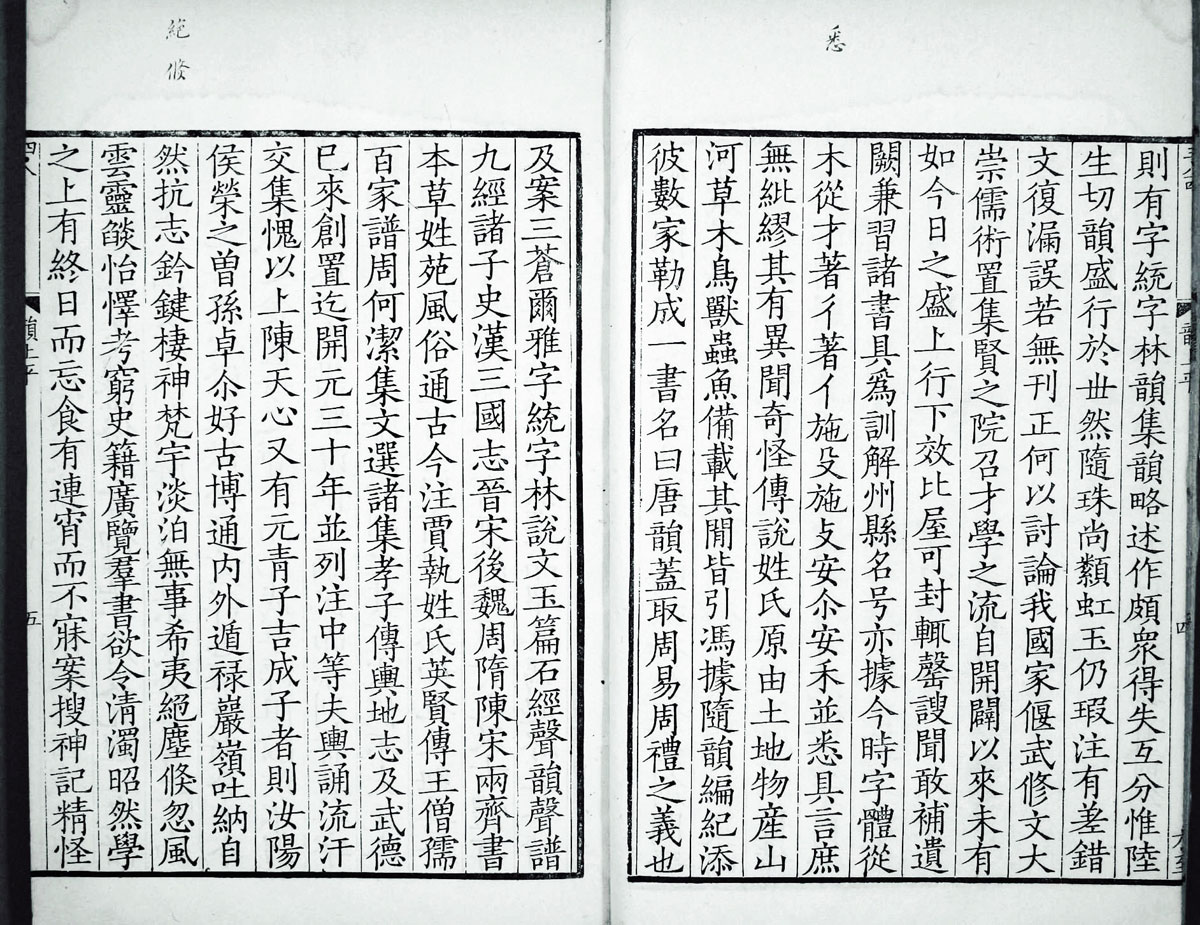 悉
則有字統字林韻集韻略述作頗衆得失互分惟陸
生切韻盛行於丗然隨珠尚纇虹玉仍瑕注有差錯
文復漏誤若無刊正何以討論我國家偃武修文大
崇儒術置集賢之院召才學之流自開闢以來未有
如今日之盛上行下效比屋可封輒罄謏聞敢補遺
闕兼習諸書具爲訓解州縣名号亦據今時字體從
木從才著彳著亻施殳施攴安尒安禾並悉具言庶
無紕繆其有異聞奇怪傳說姓氏原由土地物產山
河草木鳥獸蟲魚備載其閒皆引馮據隨韻編紀添
彼數家勒成一書名曰唐韻蓋取周易周禮之義也
四
絕
倏
及案三蒼爾雅字統字林說文玉篇石經聲韻聲譜
九經諸子史漢三國志晉宋後魏周隋陳宋兩齊書
本草姓苑風俗通古今注賈執姓氏英賢傳王僧孺
百家譜周何潔集文選諸集孝子傳輿地志及武德
已來創置迄開元三十年並列注中等夫輿誦流汗
交集愧以上陳天心又有元青子吉成子者則汝陽
侯榮之曽孫卓尒好古博通内外遁禄巖嶺吐納自
然抗志鈐鍵棲神梵宇淡泊無事希夷絕塵倏忽風
雲靈燄怡懌考窮史籍廣覽羣書欲令清濁昭然學
之上有終日而忘食有連宵而不寐案搜神記精怪
五